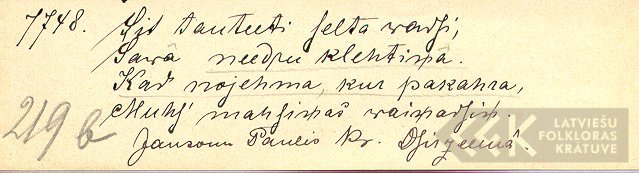 7748. Sit tauteeti selta wadsi,
Sawâ needru klehtiņâ.
Kad nojehma, kur pakahra,
Muhſ' mahsiņas waiņadsiņ.
219 b
Jansonu Paulis Kr. Dsirzeemâ.
LATVIEŠU
FOLKLORAS
KRĀTUVE